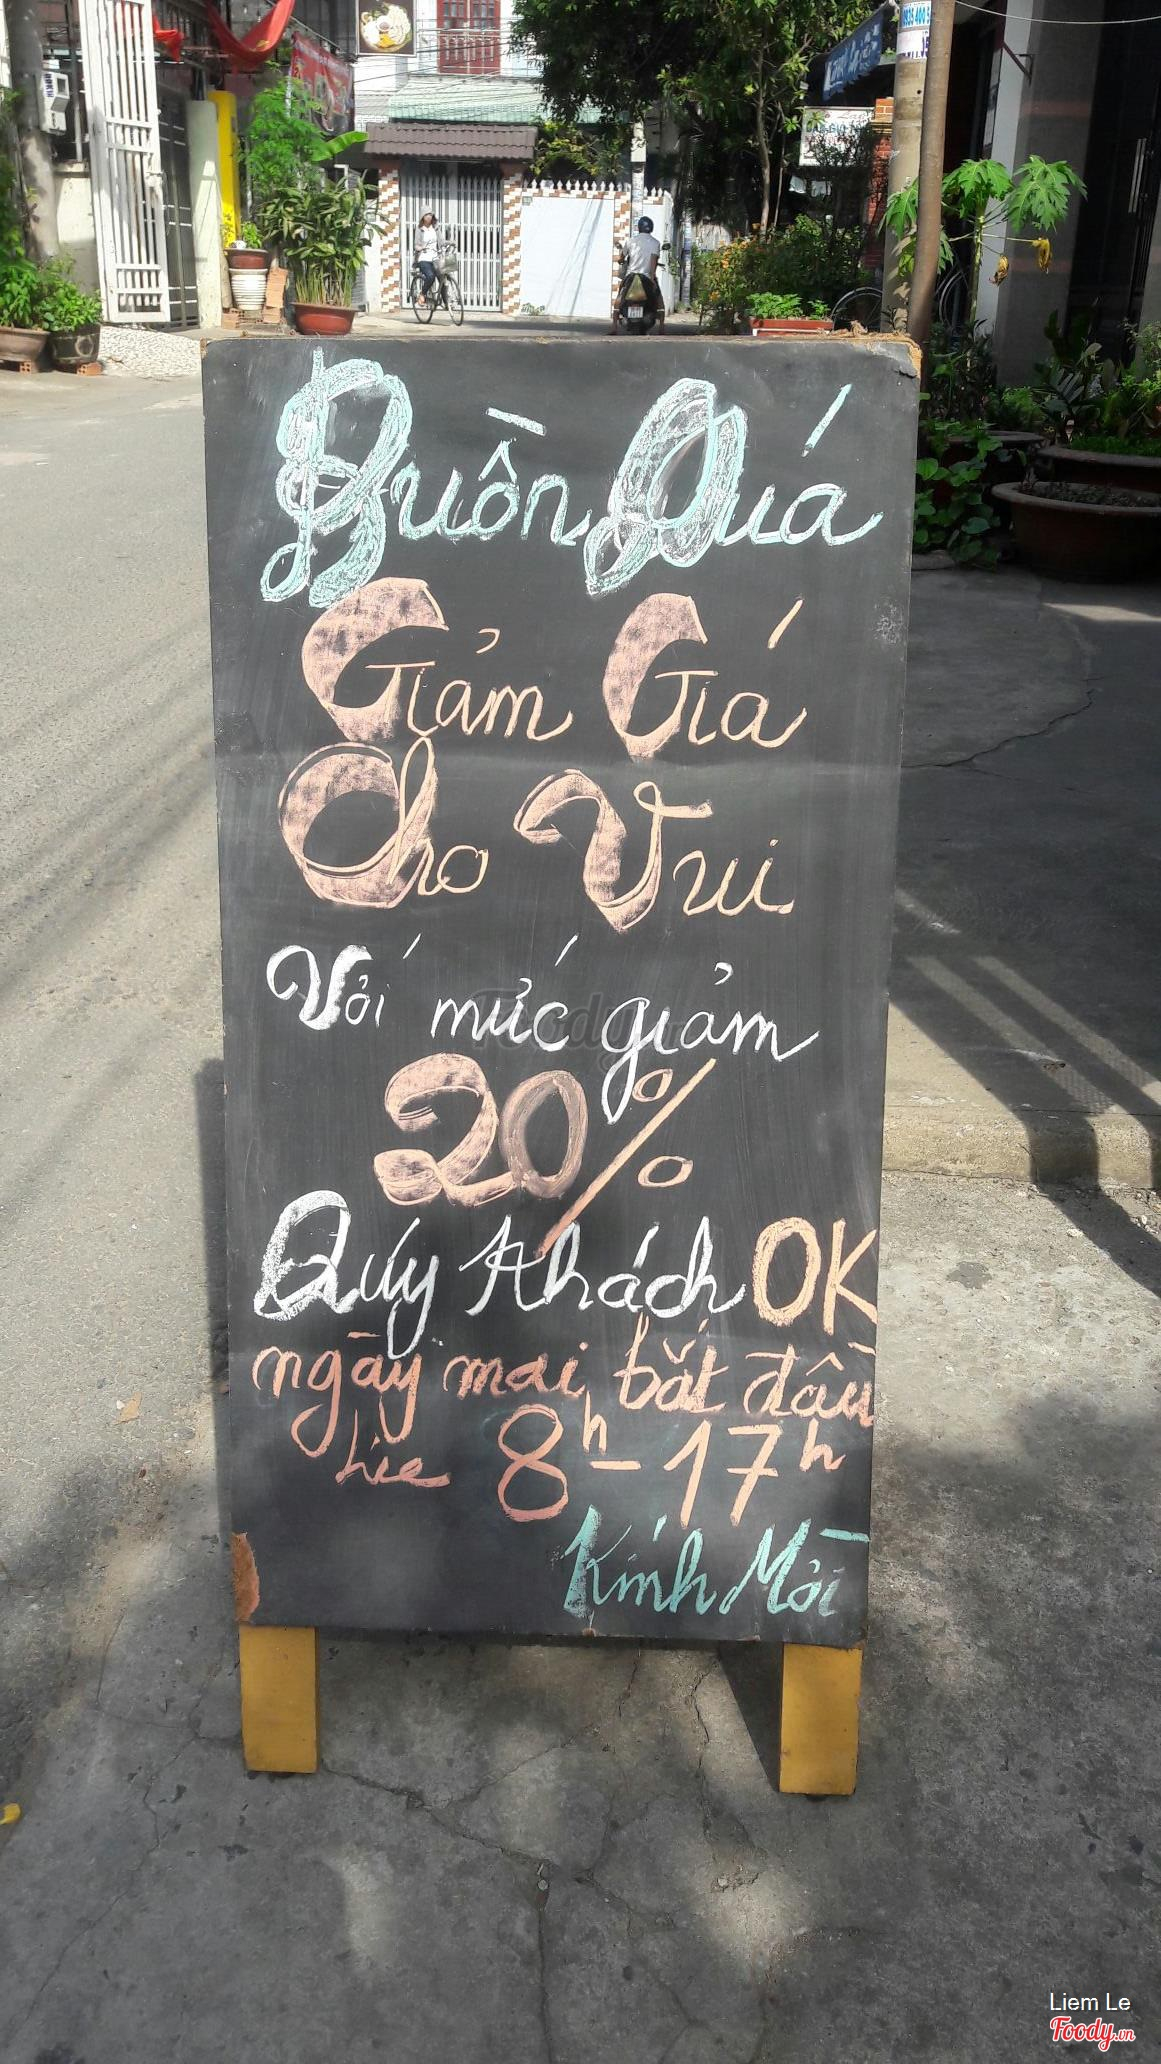 Buồn Quá
Giảm Giá
Cho Vui
Với mức giảm
20%
Quý Khách OK
ngày mai bắt đầu
8h - 17h
Kính Mời
Liem Le
Foody.vn